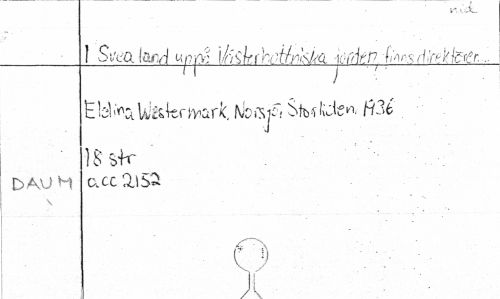 nid
I Svea land uppå Västerbottniska jorden, finns direktörer...
Elelina Westermark, Norsjö, Storliden, 1936
18 str
DAUM acc 2152